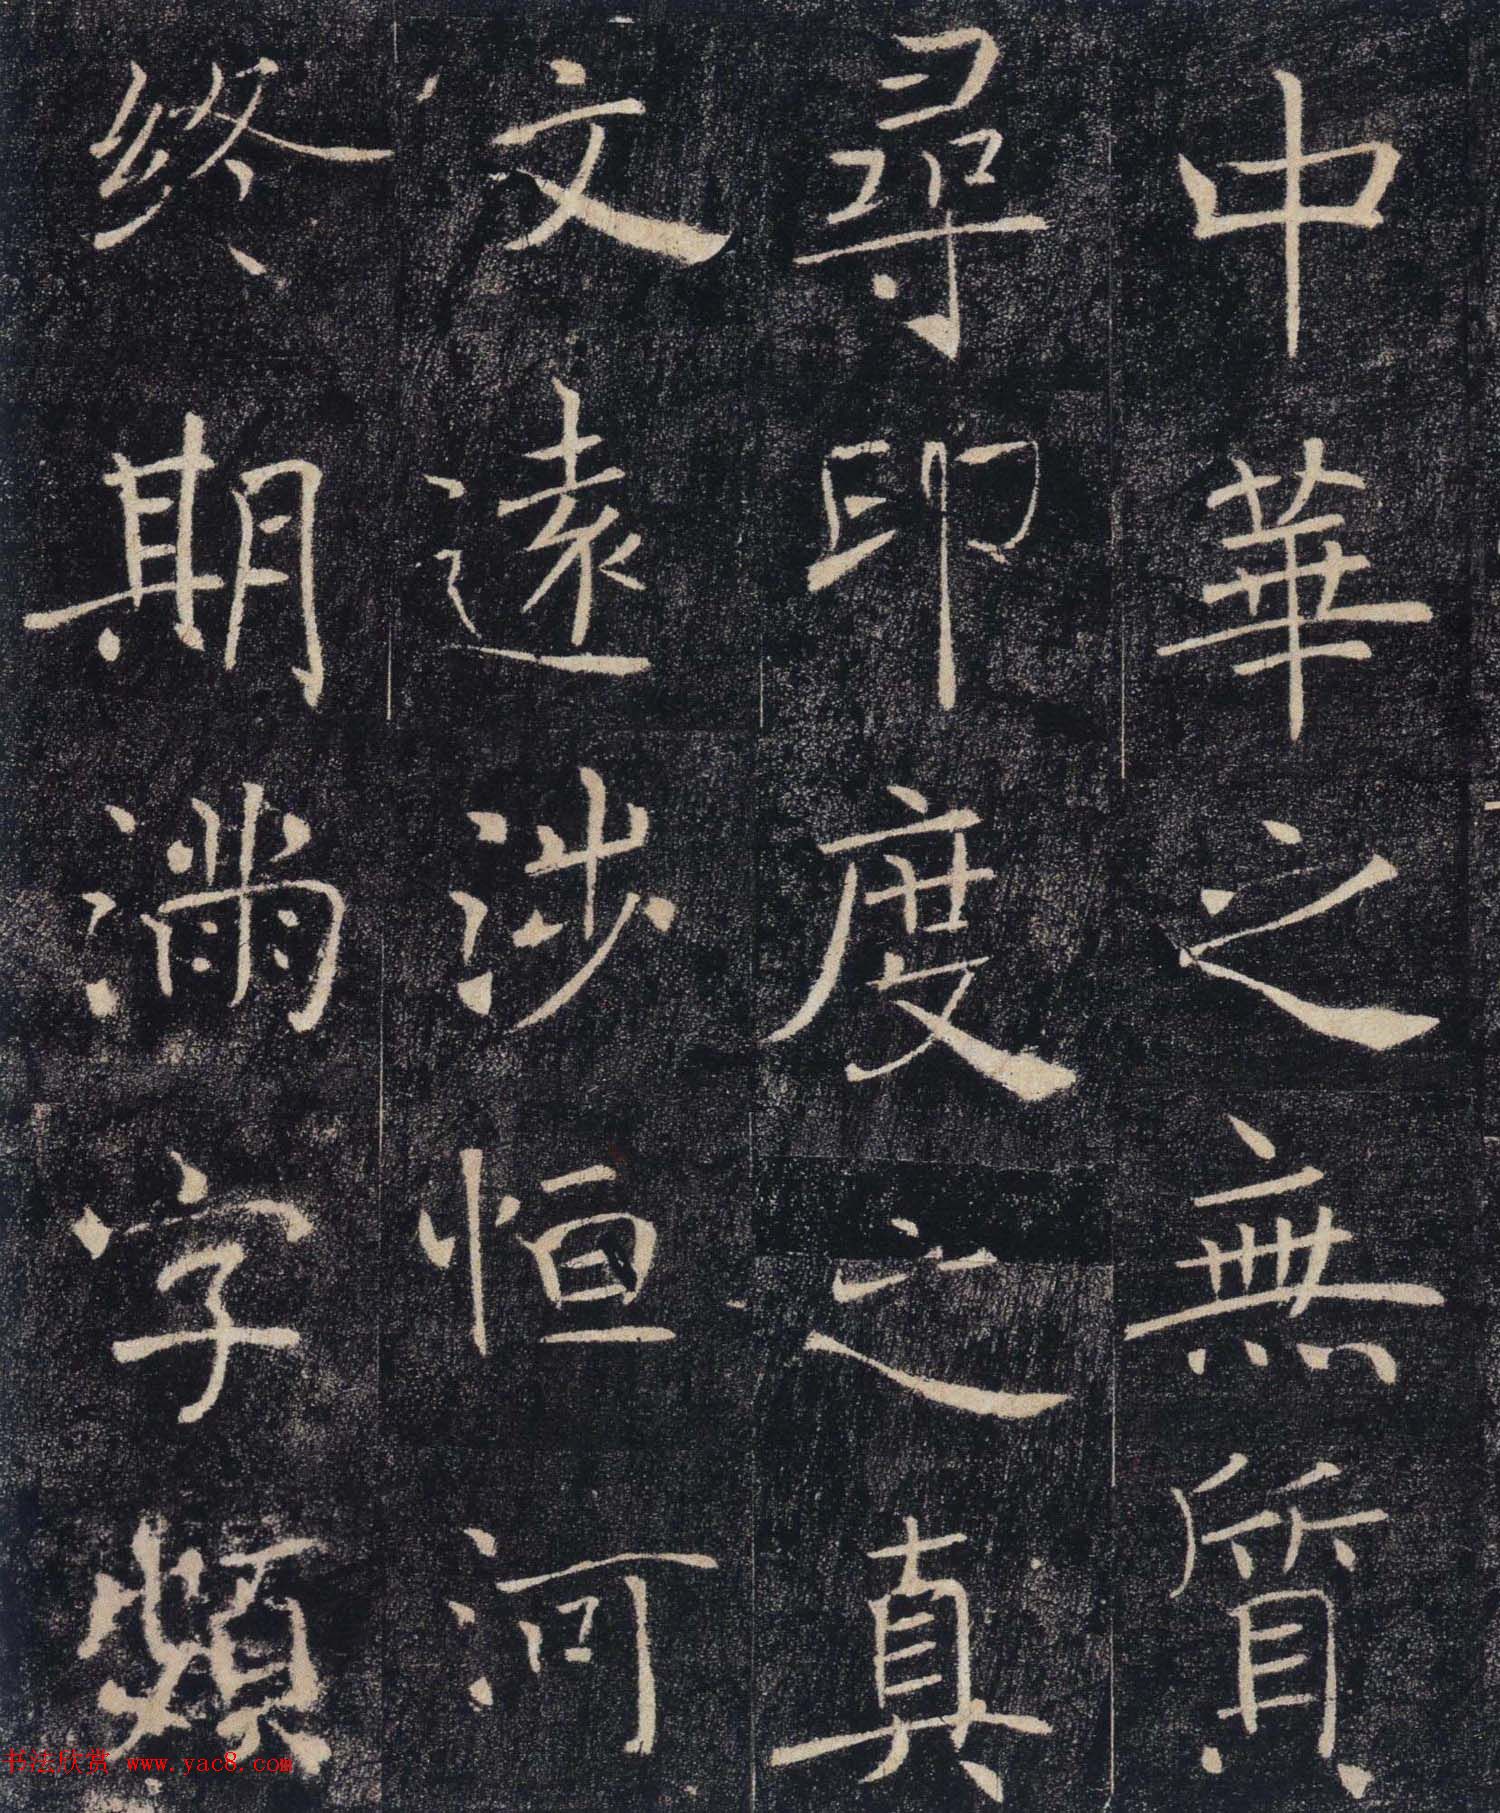 中華之無質
尋印度之真
文遠涉恒河
終期滿字頻
书法欣赏 www.yac8.com